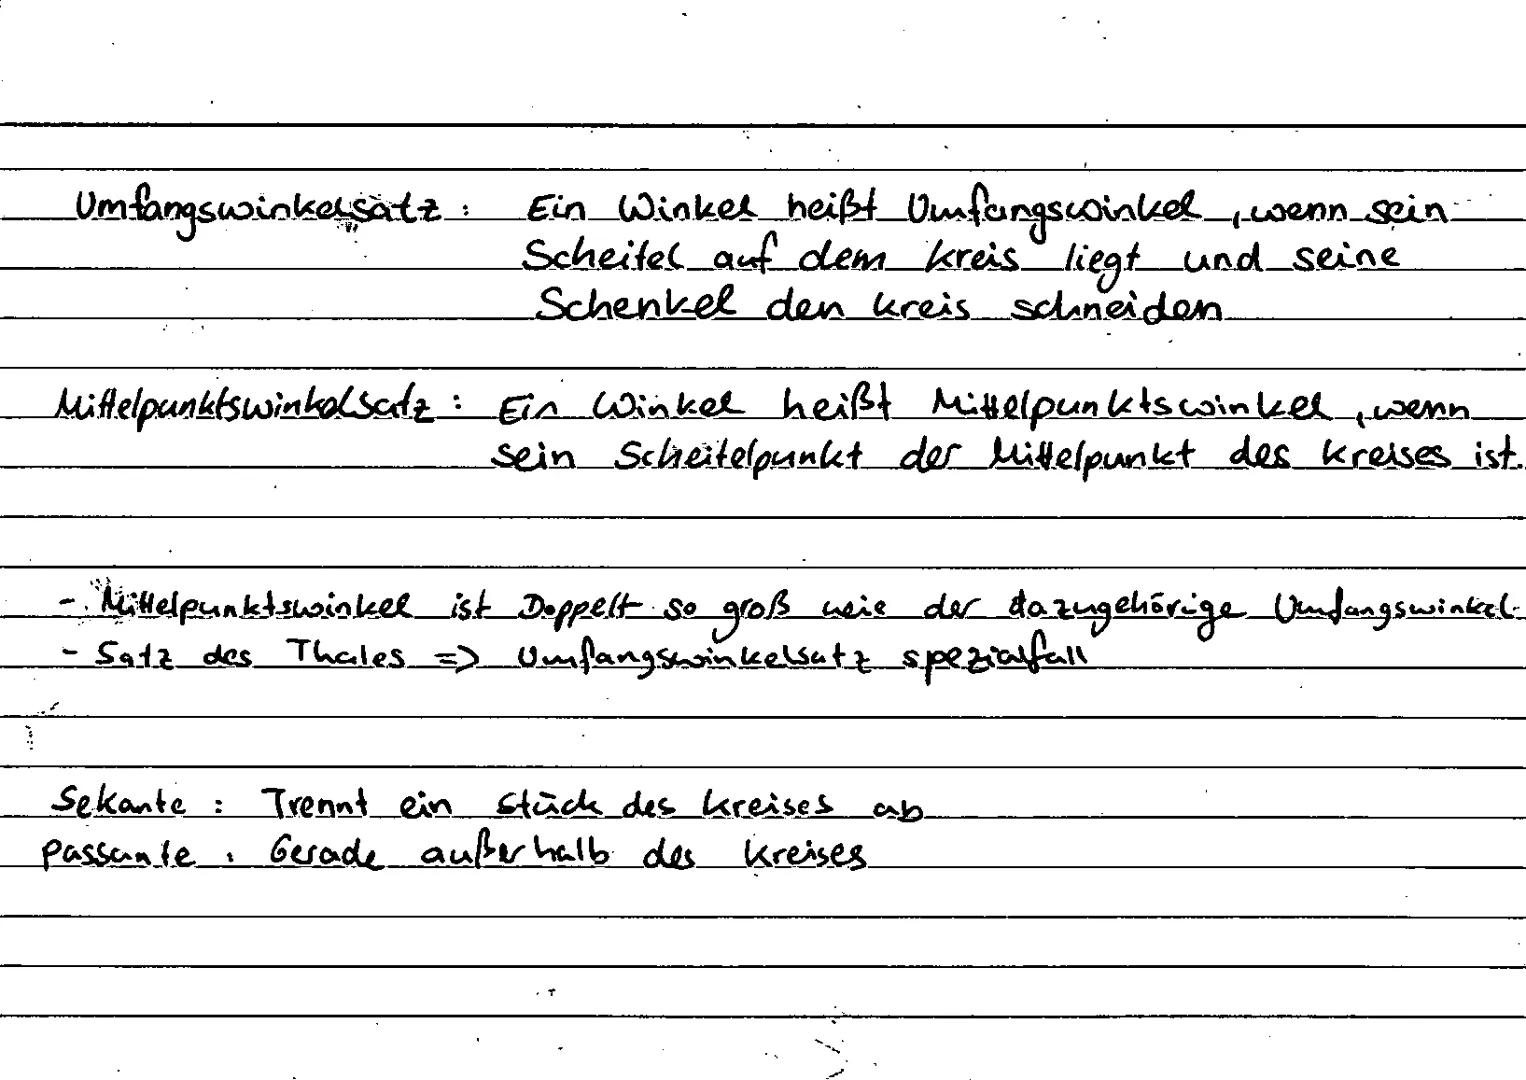 Umfangswinkelsatz : Ein Winkel heißt Umfangswinkel, wenn sein
Scheitel auf dem kreis liegt und seine
Schenkel den kreis schneiden
Mittelpunktswinkelsatz : Ein Winkel heißt Mittelpunktswinkel, wenn
sein Scheitelpunkt der Mittelpunkt des kreises ist.
- Mittelpunktswinkel ist Doppelt so groß wie der dazugehörige Umfangswinkel
- Satz des Thales => Umfangswinkelsatz spezialfall
Sekante : Trennt ein stück des kreises ab
passante : Gerade außerhalb des kreises